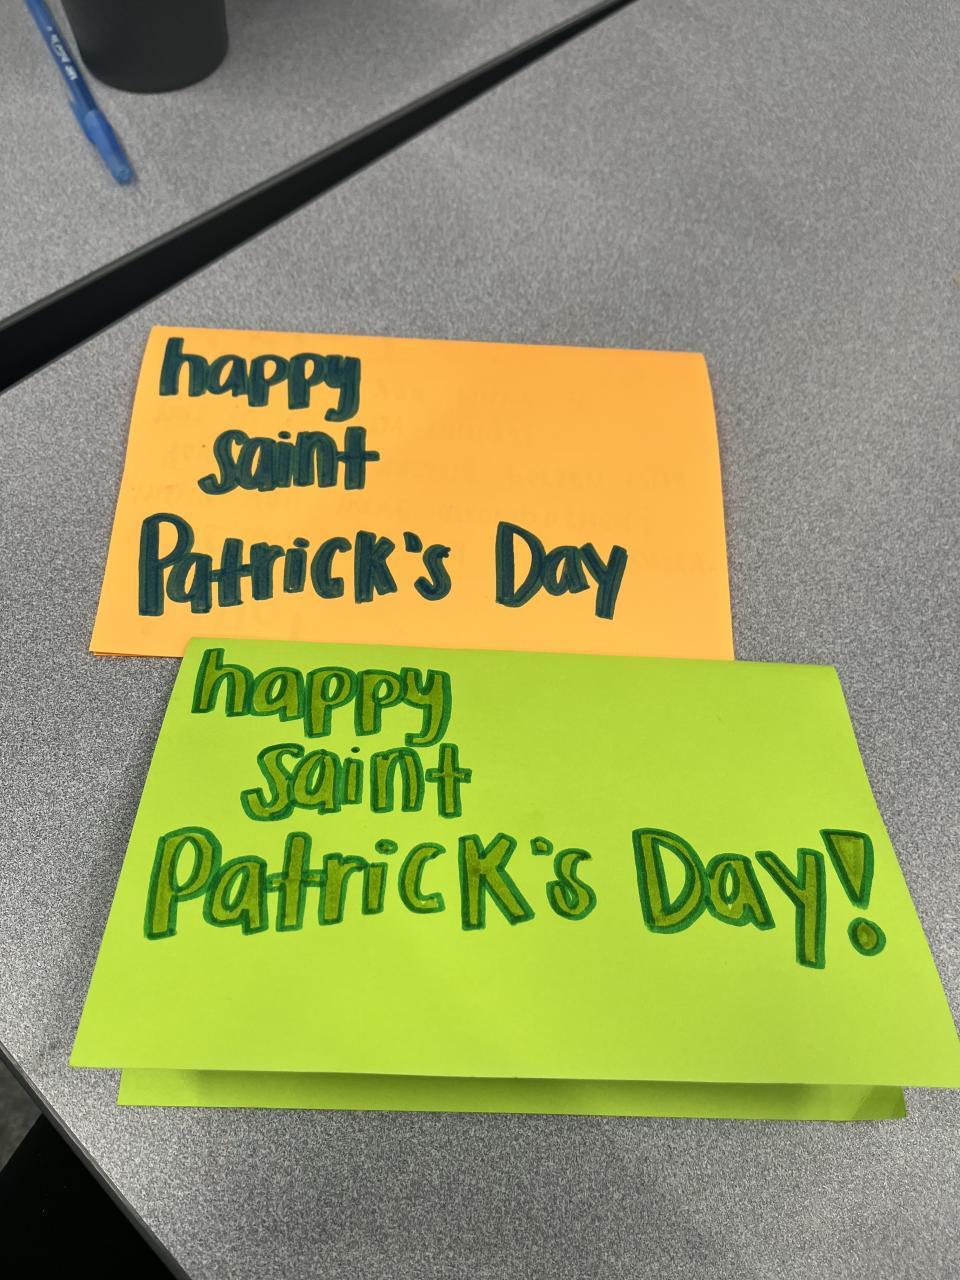 happy
saint
Patrick's Day
happy
saint
Patrick's Day!